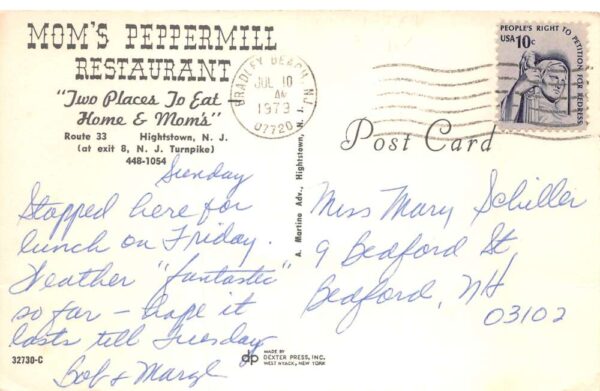 MOM'S PEPPERMILL
RESTAURANT
"Two Places To Eat
Home & Mom's"
Route 33 Hightstown, N. J.
(at exit 8, N. J. Turnpike)
448-1054
Sunday
Stopped here for
lunch on Friday.
Weather "fantastic"
so far – hope it
lasts till Tuesday
Bob & Marge
32730-C
BRADLEY BEACH, N.J.
JUL 10
AM
1979
07720
PEOPLE'S RIGHT TO PETITION FOR REDRESS
USA 10c
Post Card
A. Martino Adv., Hightstown, N. J.
Miss Mary Schiller
9 Bedford St,
Bedford, NH
03102
dp MADE BY
DEXTER PRESS, INC.
WEST NYACK, NEW YORK